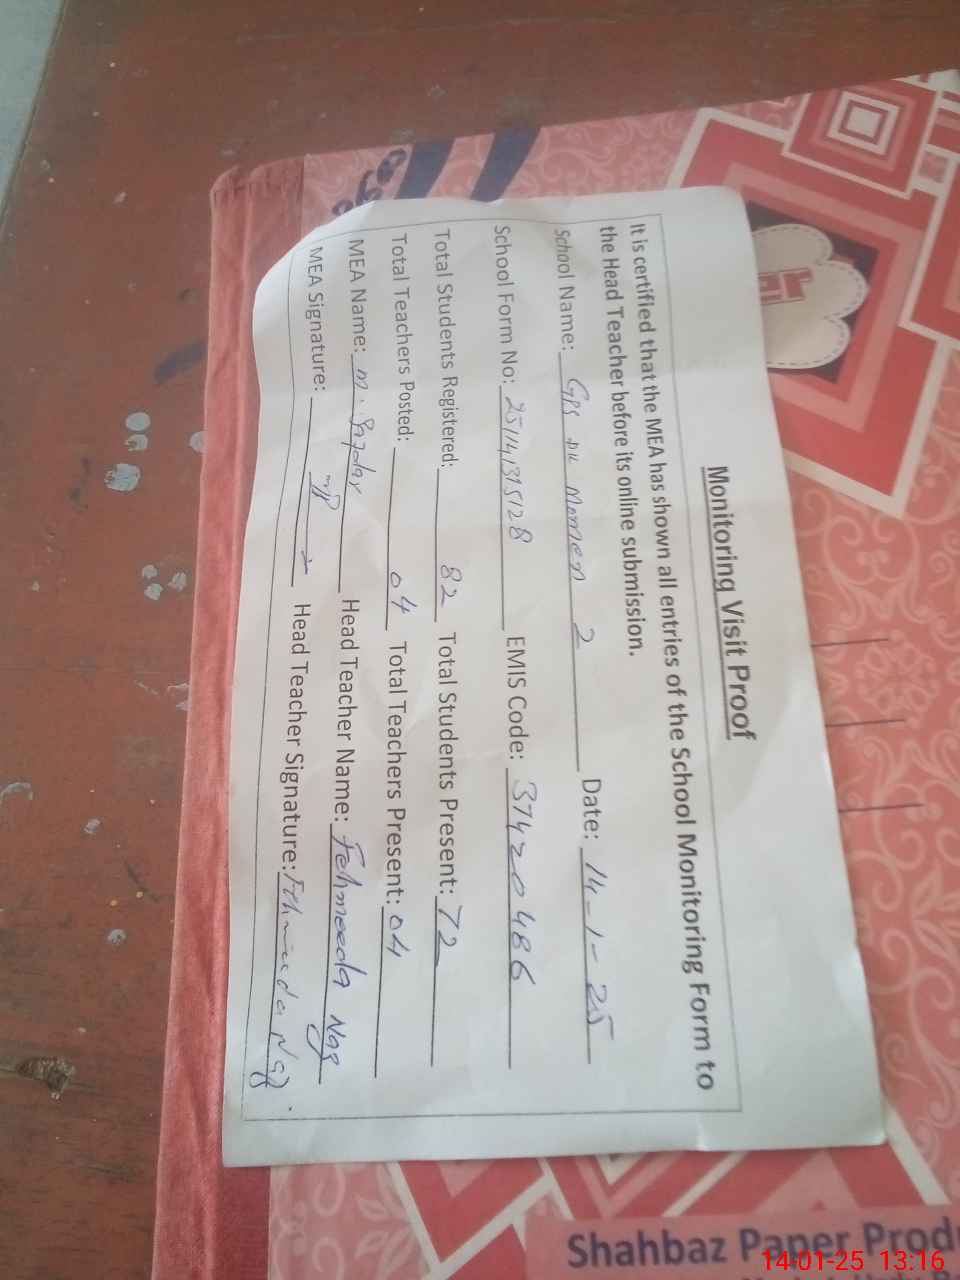 Monitoring Visit Proof
It is certified that the MEA has shown all entries of the School Monitoring Form to
the Head Teacher before its online submission.
School Name: GPS DK Momen 2 Date: 14-1-25
School Form No: 251141315128 EMIS Code: 37420486
Total Students Registered: 82 Total Students Present: 72
Total Teachers Posted: 04 Total Teachers Present: 04
MEA Name: M. Safdar Head Teacher Name: Fehmeeda Naz
MEA Signature: Head Teacher Signature: Fehmeeda Naz
Shahbaz Paper Prod
14-01-25 13:16